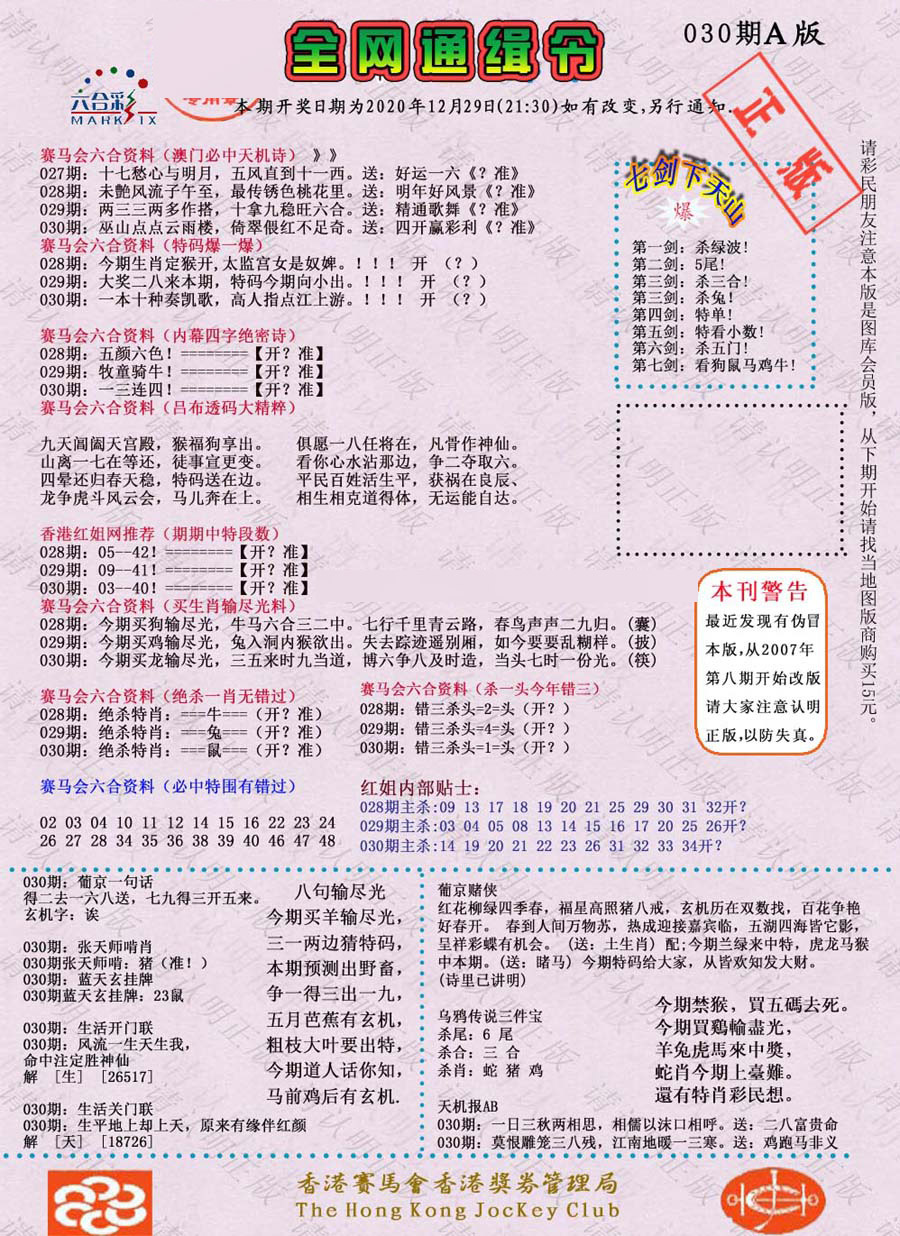 全网通缉令
030期A版
六合彩
MARK SIX
专用章
本期开奖日期为2020年12月29日(21:30)如有改变,另行通知.
正版
赛马会六合资料（澳门必中天机诗）》》
027期: 十七愁心与明月, 五风直到十一西。送: 好运一六《? 准》
028期: 未艷风流子午至, 最传锈色桃花里。送: 明年好风景《? 准》
029期: 两三三两多作搭, 十拿九稳旺六合。送: 精通歌舞《? 准》
030期: 巫山点点云雨楼, 倚翠偎红不足奇。送: 四开赢彩利《? 准》
赛马会六合资料（特码爆一爆）
028期: 今期生肖定猴开,太监宫女是奴婢。!!! 开 （?）
029期: 大奖二八来本期, 特码今期向小出。!!! 开 （?）
030期: 一本十种奏凯歌, 高人指点江上游。!!! 开 （?）
赛马会六合资料（内幕四字绝密诗）
028期: 五颜六色! ========【开? 准】
029期: 牧童骑牛! ========【开? 准】
030期: 一三连四! ========【开? 准】
赛马会六合资料（吕布透码大精粹）
九天阊阖天宫殿, 猴福狗享出。 俱愿一八任将在, 凡骨作神仙。
山离一七在等还, 徒事宣更变。 看你心水沾那边, 争二夺取六。
四晕还归春天稳, 特码送在边。 平民百姓活生平, 获祸在良辰、
龙争虎斗风云会, 马儿奔在上。 相生相克道得体, 无运能自达。
香港红姐网推荐（期期中特段数）
028期: 05--42! ========【开? 准】
029期: 09--41! ========【开? 准】
030期: 03--40! ========【开? 准】
赛马会六合资料（买生肖输尽光料）
028期: 今期买狗输尽光, 牛马六合三二中。七行千里青云路, 春鸟声声二九归。(囊)
029期: 今期买鸡输尽光, 兔入洞内猴欲出。失去踪迹遥别厢, 如今要要乱糊样。(披)
030期: 今期买龙输尽光, 三五来时九当道, 博六争八及时造, 当头七时一份光。(筷)
赛马会六合资料（绝杀一肖无错过）
028期: 绝杀特肖: ===牛===（开? 准）
029期: 绝杀特肖: ===兔===（开? 准）
030期: 绝杀特肖: ===鼠===（开? 准）
赛马会六合资料（杀一头今年错三）
028期: 错三杀头=2=头（开? ）
029期: 错三杀头=4=头（开? ）
030期: 错三杀头=1=头（开? ）
赛马会六合资料（必中特围有错过）
02 03 04 10 11 12 14 15 16 22 23 24
26 27 28 34 35 36 38 39 40 46 47 48
红姐内部贴士:
028期主杀:09 13 17 18 19 20 21 25 29 30 31 32开?
029期主杀:03 04 05 08 13 14 15 16 17 20 25 26开?
030期主杀:14 19 20 21 22 23 26 31 32 33 34开?
七剑下天山
爆
第一剑: 杀绿波!
第二剑: 5尾!
第三剑: 杀三合!
第三剑: 杀兔!
第四剑: 特单!
第五剑: 特看小数!
第六剑: 杀五门!
第七剑: 看狗鼠马鸡牛!
请彩民朋友注意本版是图库会员版，从下期开始请找当地图版商购买15元。
本刊警告
最近发现有伪冒
本版,从2007年
第八期开始改版
请大家注意认明
正版,以防失真。
030期: 葡京一句话
得二去一六八送, 七九得三开五来。
玄机字: 诶
030期: 张天师啃肖
030期张天师啃: 猪（准! ）
030期: 蓝天玄挂牌
030期蓝天玄挂牌: 23鼠
030期: 生活开门联
030期: 风流一生天生我,
命中注定胜神仙
解 [生] [26517]
030期: 生活关门联
030期: 生平地上却上天, 原来有缘伴红颜
解 [天] [18726]
八句输尽光
今期买羊输尽光,
三一两边猜特码,
本期预测出野畜,
争一得三出一九,
五月芭蕉有玄机,
粗枝大叶要出特,
今期道人话你知,
马前鸡后有玄机.
葡京赌侠
红花柳绿四季春, 福星高照猪八戒, 玄机历在双数找, 百花争艳
好春开。 春到人间万物苏, 热成迎接嘉宾临, 五湖四海皆它影,
呈祥彩蝶有机会。 (送: 土生肖) 配;今期兰绿来中特, 虎龙马猴
中本期。(送: 睹马) 今期特码给大家, 从皆欢知发大财。
(诗里已讲明)
乌鸦传说三件宝
杀尾: 6 尾
杀合: 三 合
杀肖: 蛇 猪 鸡
今期禁猴, 買五碼去死。
今期買鷄輸盡光,
羊兔虎馬來中獎,
蛇肖今期上臺難。
還有特肖彩民想。
天机报AB
030期: 一日三秋两相思, 相儒以沫口相呼。送: 二八富贵命
030期: 莫恨雕笼三八残, 江南地暖一三寒。送: 鸡跑马非义
香港賽馬會香港獎券管理局
The Hong Kong JocKey Club